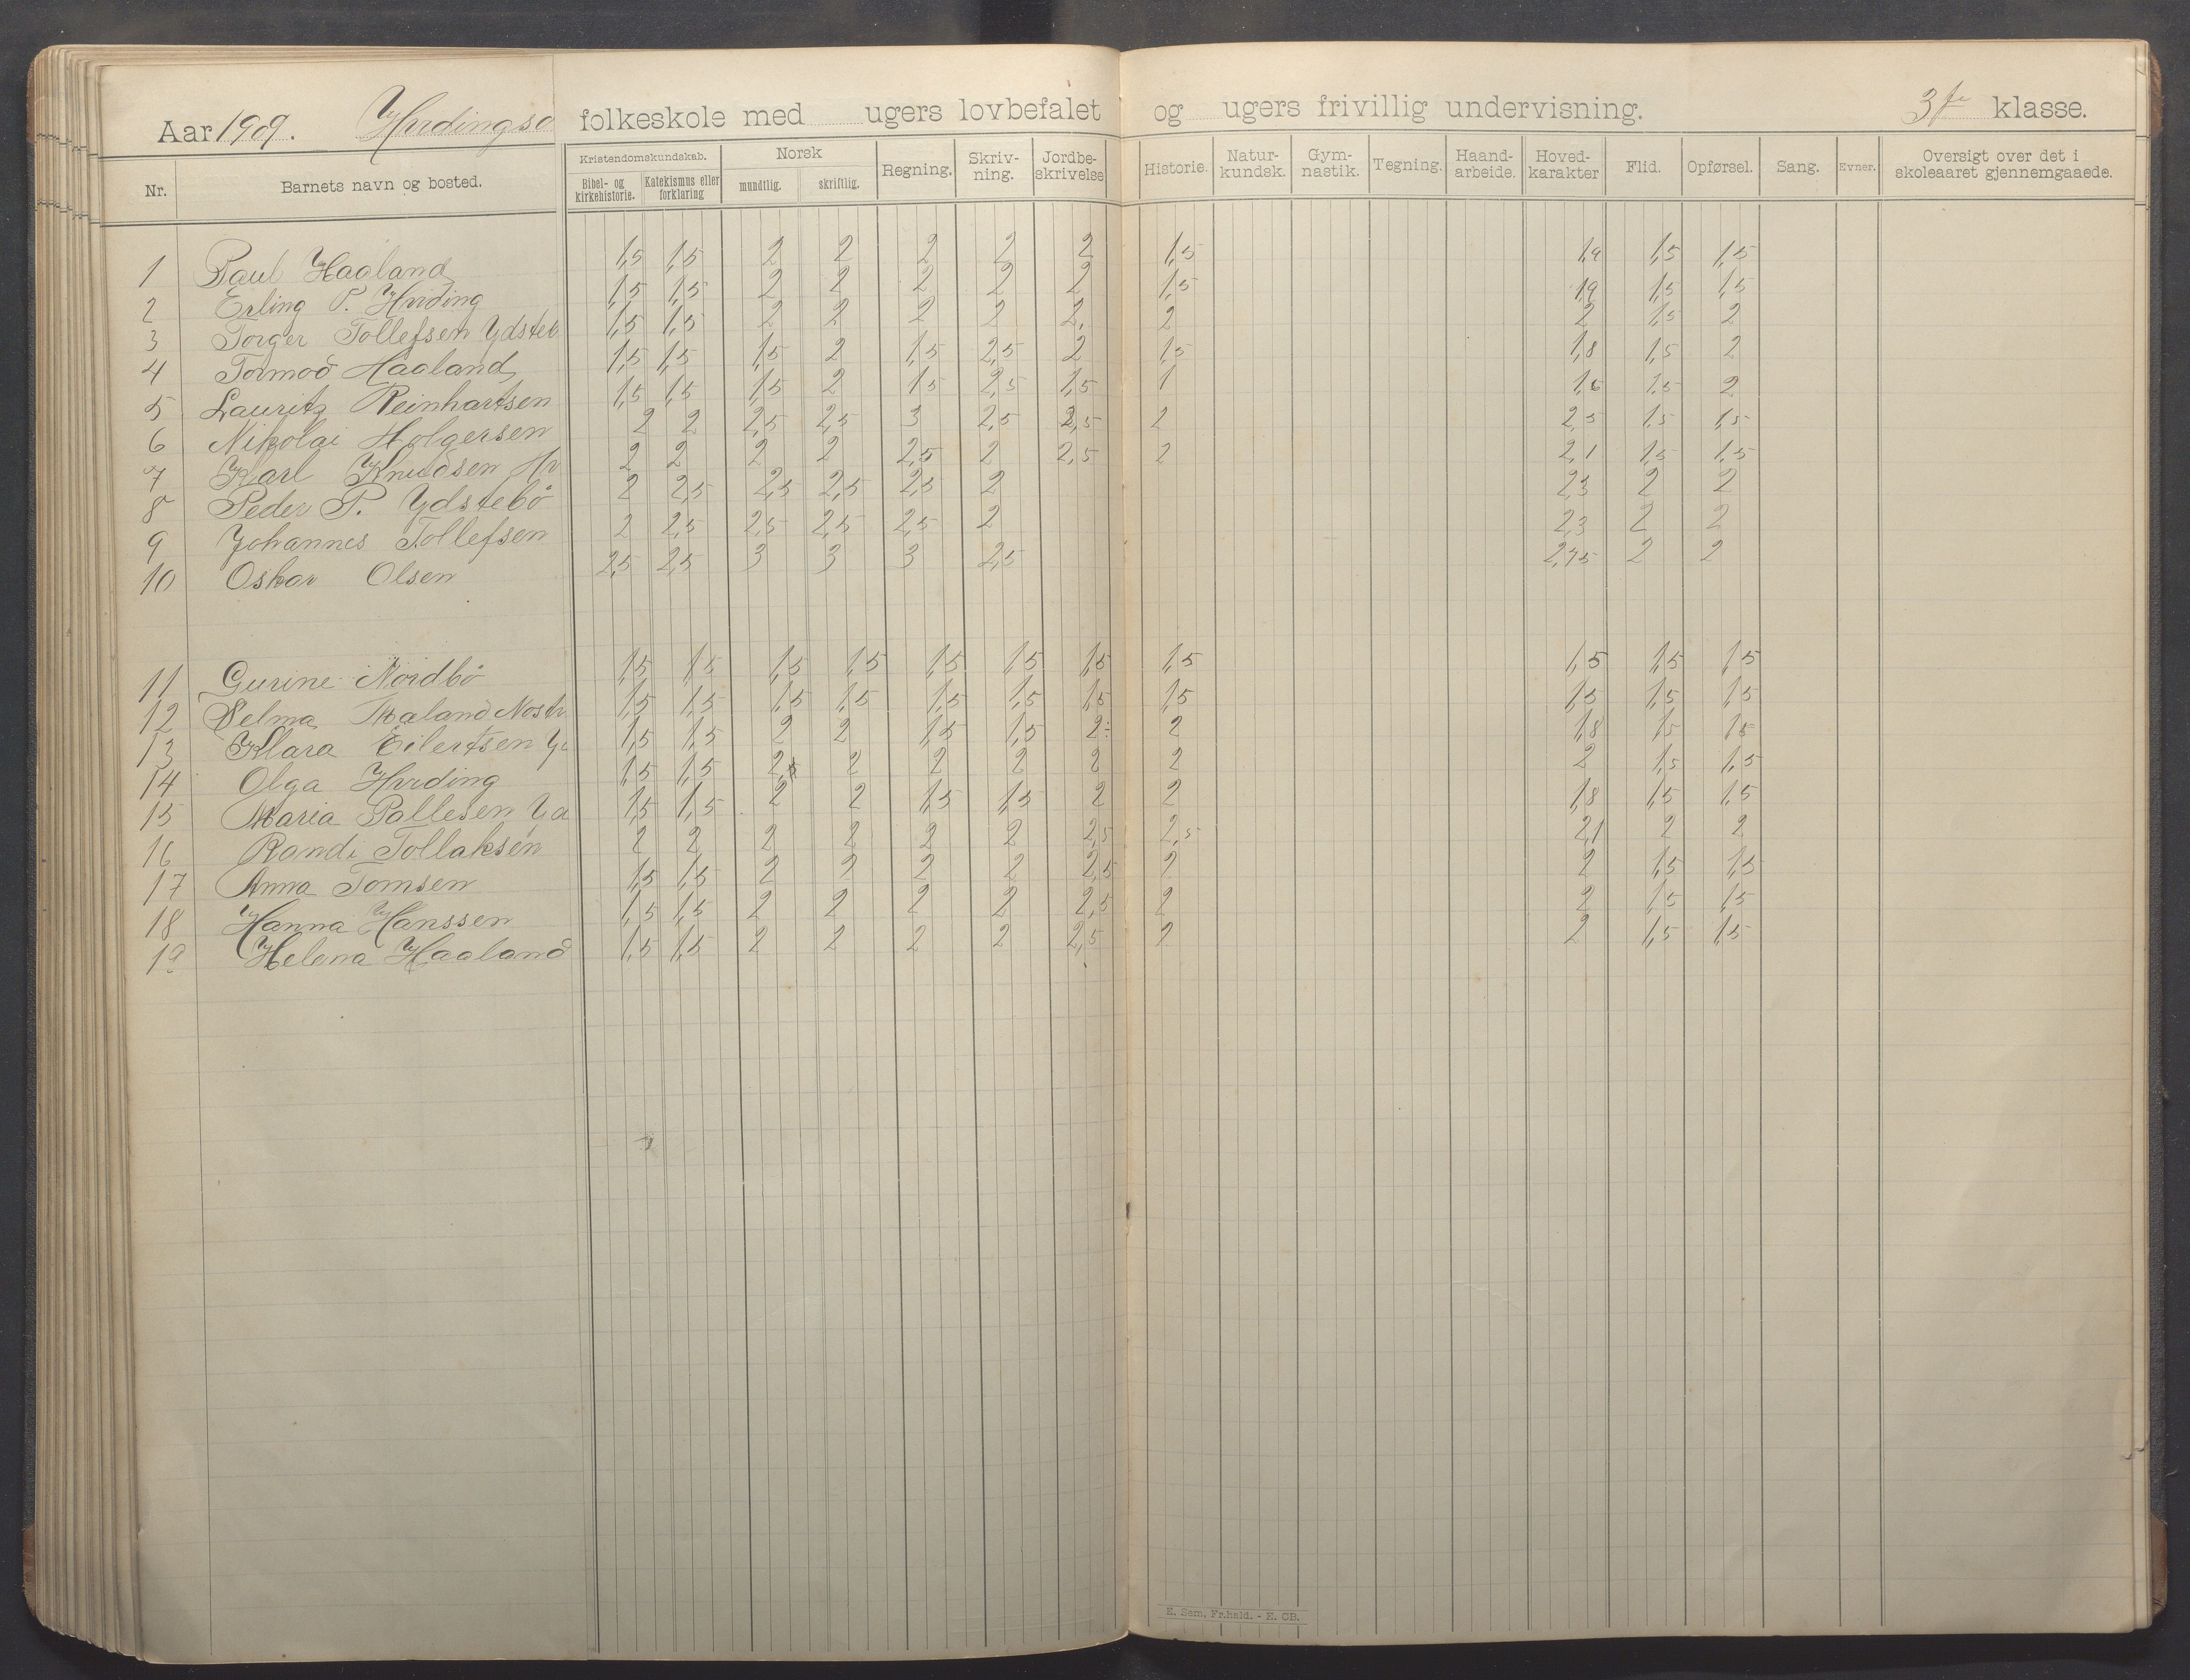 Aar 1909. Hvidingsø folkeskole med ugers lovbefalet og ugers frivillig undervisning. 3die klasse.
Nr. Barnets navn og bosted. Kristendomskundskab. Bibel- og kirkehistorie. Katekismus eller forklaring Norsk mundtlig. skriftlig. Regning. Skriv-ning. Jordbe-skrivelse Historie. Natur-kundsk. Gym-nastik. Tegning. Haand-arbeide. Hoved-karakter Flid. Opførsel. Sang. Evner. Oversigt over det i skoleaaret gjennemgaaede.
1 Paul Haaland 1,5 1,5 2 2 2 2 2 1,5 1,9 1,5 1,5
2 Erling P. Hviding 1,5 1,5 2 2 2 2 2 1,5 1,9 1,5 1,5
3 Torger Tollefsen Ydsteb 1,5 1,5 2 2 2 2 2, 2 2 1,5 2
4 Tormod Haaland 1,5 1,5 1,5 2 1,5 2,5 2 1,5 1,8 1,5 2
5 Lauritz Reinhartsen 1,5 1,5 1,5 2 1,5 2,5 1,5 1 1,6 1,5 2
6 Nikolai Holgersen 2 2 2,5 2,5 3 2,5 2,5 2 2,5 1,5 1,5
7 Karl Knudsen Hv 2 2 2 2 2,5 2 2,5 2 2,1 1,5 1,5
8 Peder P. Ydstebö 2 2,5 2,5 2,5 2,5 2 2,3 2 2
9 Johannes Tollefsen 2 2,5 2,5 2,5 2,5 2 2,3 2 2
10 Oskar Olsen 2,5 2,5 3 3 3 2,5 2,75 2 2
11 Gurine Nordbö 1,5 1,5 1,5 1,5 1,5 1,5 1,5 1,5 1,5 1,5 1,5
12 Selma Mæland Nostr 1,5 1,5 1,5 1,5 1,5 1,5 1,5 1,5 1,5 1,5 1,5
13 Klara Eilertsen Yd 1,5 1,5 2 2 1,5 1,5 2÷ 2 1,8 1,5 1,5
14 Olga Hviding 1,5 1,5 2, 2 2 2 2 2 2 1,5 1,5
15 Maria Pallesen Yd 1,5 1,5 2 2 1,5 1,5 2 2 1,8 1,5 1,5
16 Randi Tollaksen 2 2 2 2 2 2 2,5 2,5 2,1 2 2
17 Anna Tomsen 1,5 1,5 2 2 2 2 2,5 2 2 1,5 1,5
18 Hanna Hanssen 1,5 1,5 2 2 2 2 2,5 2 2 1,5 1,5
19 Helena Haaland 1,5 1,5 2 2 2 2 2,5 2 2 1,5 1,5
E. Sem, Fr.hald. - E. CB.